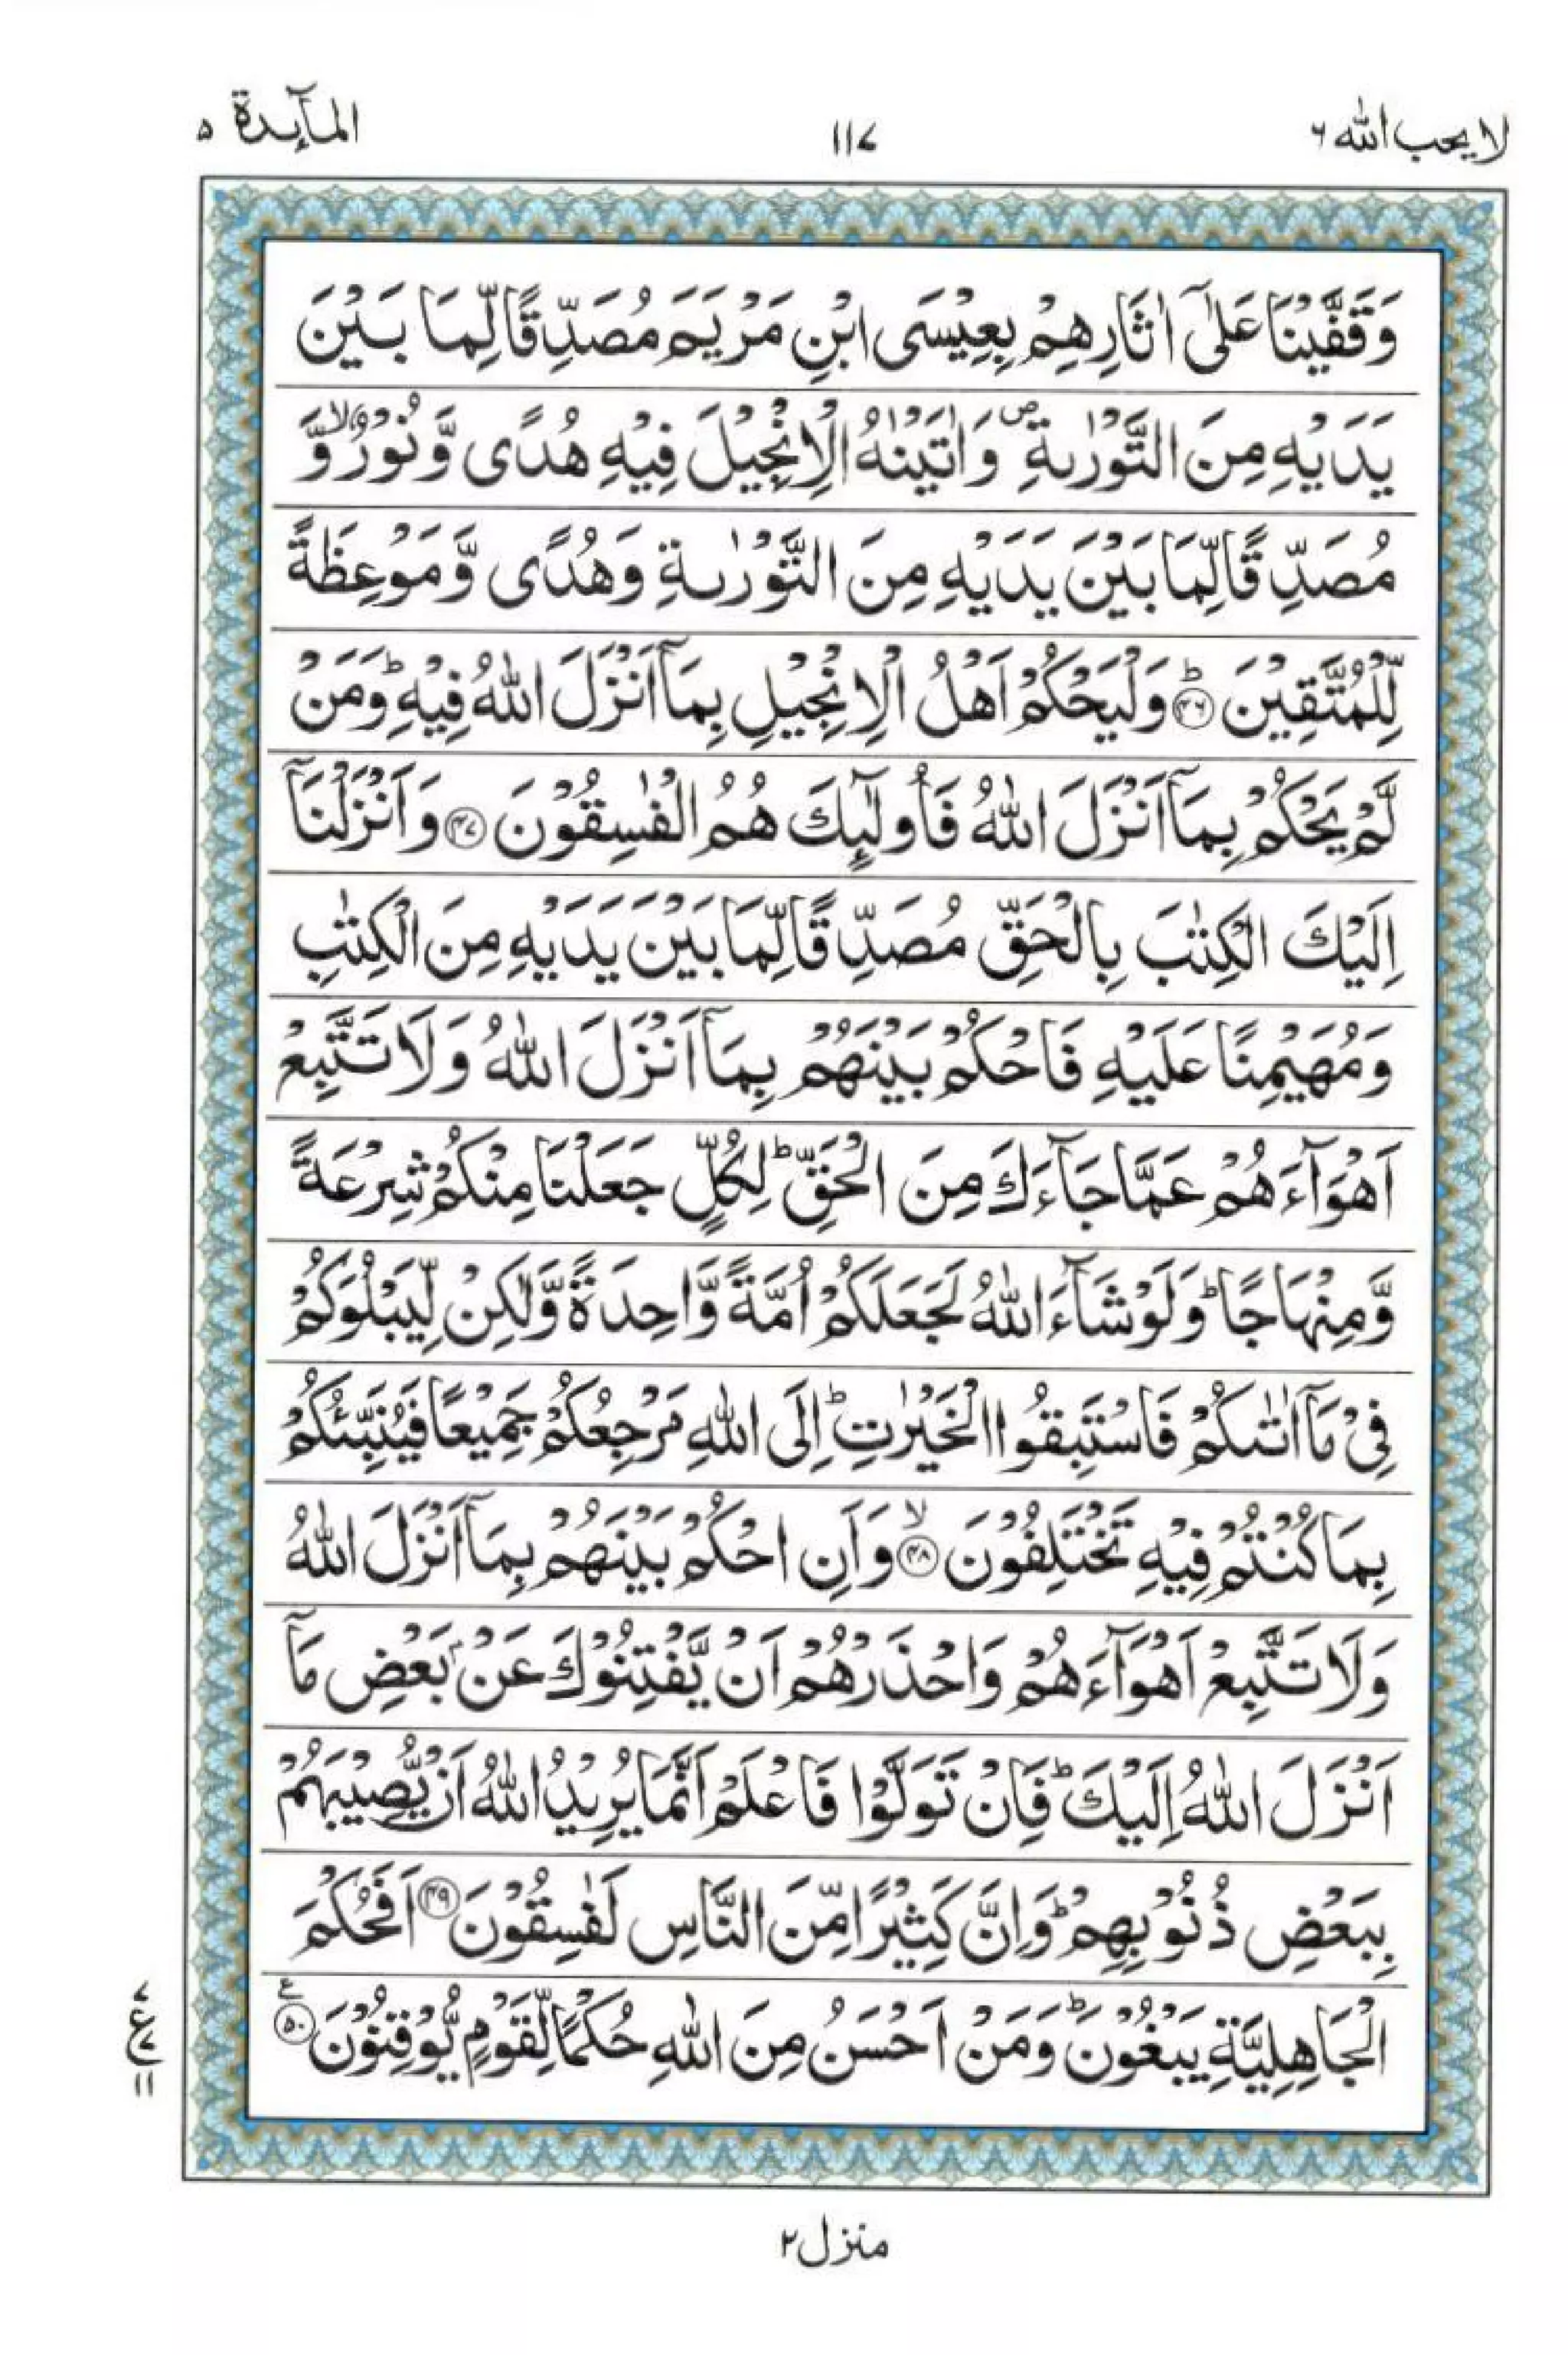 لا يحب الله ٦
١١٧
المآئدة ٥
وَقَفَّيْنَا عَلٰٓى اٰثَارِهِمْ بِعِيْسَى ابْنِ مَرْيَمَ مُصَدِّقًا لِّمَا بَيْنَ
يَدَيْهِ مِنَ التَّوْرٰىةِ ۪ وَاٰتَيْنٰهُ الْاِنْجِيْلَ فِيْهِ هُدًى وَّنُوْرٌ ۙ وَّ
مُصَدِّقًا لِّمَا بَيْنَ يَدَيْهِ مِنَ التَّوْرٰىةِ وَهُدًى وَّمَوْعِظَةً
لِّلْمُتَّقِيْنَ ؕ﴿۴۶﴾ وَلْيَحْكُمْ اَهْلُ الْاِنْجِيْلِ بِمَاۤ اَنْزَلَ اللّٰهُ فِيْهِ ؕ وَمَنْ
لَّمْ يَحْكُمْ بِمَاۤ اَنْزَلَ اللّٰهُ فَاُولٰٓئِكَ هُمُ الْفٰسِقُوْنَ ﴿۴۷﴾ وَاَنْزَلْنَاۤ
اِلَيْكَ الْكِتٰبَ بِالْحَقِّ مُصَدِّقًا لِّمَا بَيْنَ يَدَيْهِ مِنَ الْكِتٰبِ
وَمُهَيْمِنًا عَلَيْهِ فَاحْكُمْ بَيْنَهُمْ بِمَاۤ اَنْزَلَ اللّٰهُ وَلَا تَتَّبِعْ
اَهْوَآءَهُمْ عَمَّا جَآءَكَ مِنَ الْحَقِّ ؕ لِكُلٍّ جَعَلْنَا مِنْكُمْ شِرْعَةً
وَّمِنْهَاجًا ؕ وَلَوْ شَآءَ اللّٰهُ لَجَعَلَكُمْ اُمَّةً وَّاحِدَةً وَّلٰكِنْ لِّيَبْلُوَكُمْ
فِيْ مَاۤ اٰتٰىكُمْ فَاسْتَبِقُوا الْخَيْرٰتِ ؕ اِلَى اللّٰهِ مَرْجِعُكُمْ جَمِيْعًا فَيُنَبِّئُكُمْ
بِمَا كُنْتُمْ فِيْهِ تَخْتَلِفُوْنَ ۙ﴿۴۸﴾ وَاَنِ احْكُمْ بَيْنَهُمْ بِمَاۤ اَنْزَلَ اللّٰهُ
وَلَا تَتَّبِعْ اَهْوَآءَهُمْ وَاحْذَرْهُمْ اَنْ يَّفْتِنُوْكَ عَنْۢ بَعْضِ مَاۤ
اَنْزَلَ اللّٰهُ اِلَيْكَ ؕ فَاِنْ تَوَلَّوْا فَاعْلَمْ اَنَّمَا يُرِيْدُ اللّٰهُ اَنْ يُّصِيْبَهُمْ
بِبَعْضِ ذُنُوْبِهِمْ ؕ وَاِنَّ كَثِيْرًا مِّنَ النَّاسِ لَفٰسِقُوْنَ ﴿۴۹﴾ اَفَحُكْمَ
الْجَاهِلِيَّةِ يَبْغُوْنَ ؕ وَمَنْ اَحْسَنُ مِنَ اللّٰهِ حُكْمًا لِّقَوْمٍ يُّوْقِنُوْنَ ﴿۵۰﴾ ع
٧
ع ٧
١١
منزل ٢